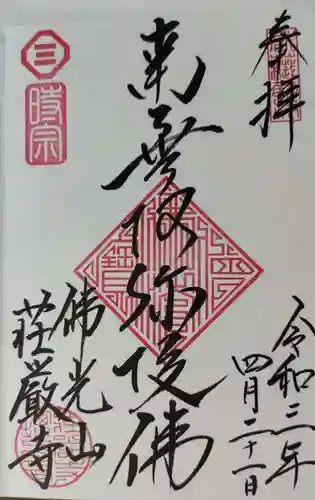 奉拝
令和三年
四月二十一日
南無阿弥陀佛
佛光山
荘厳寺
三
時宗